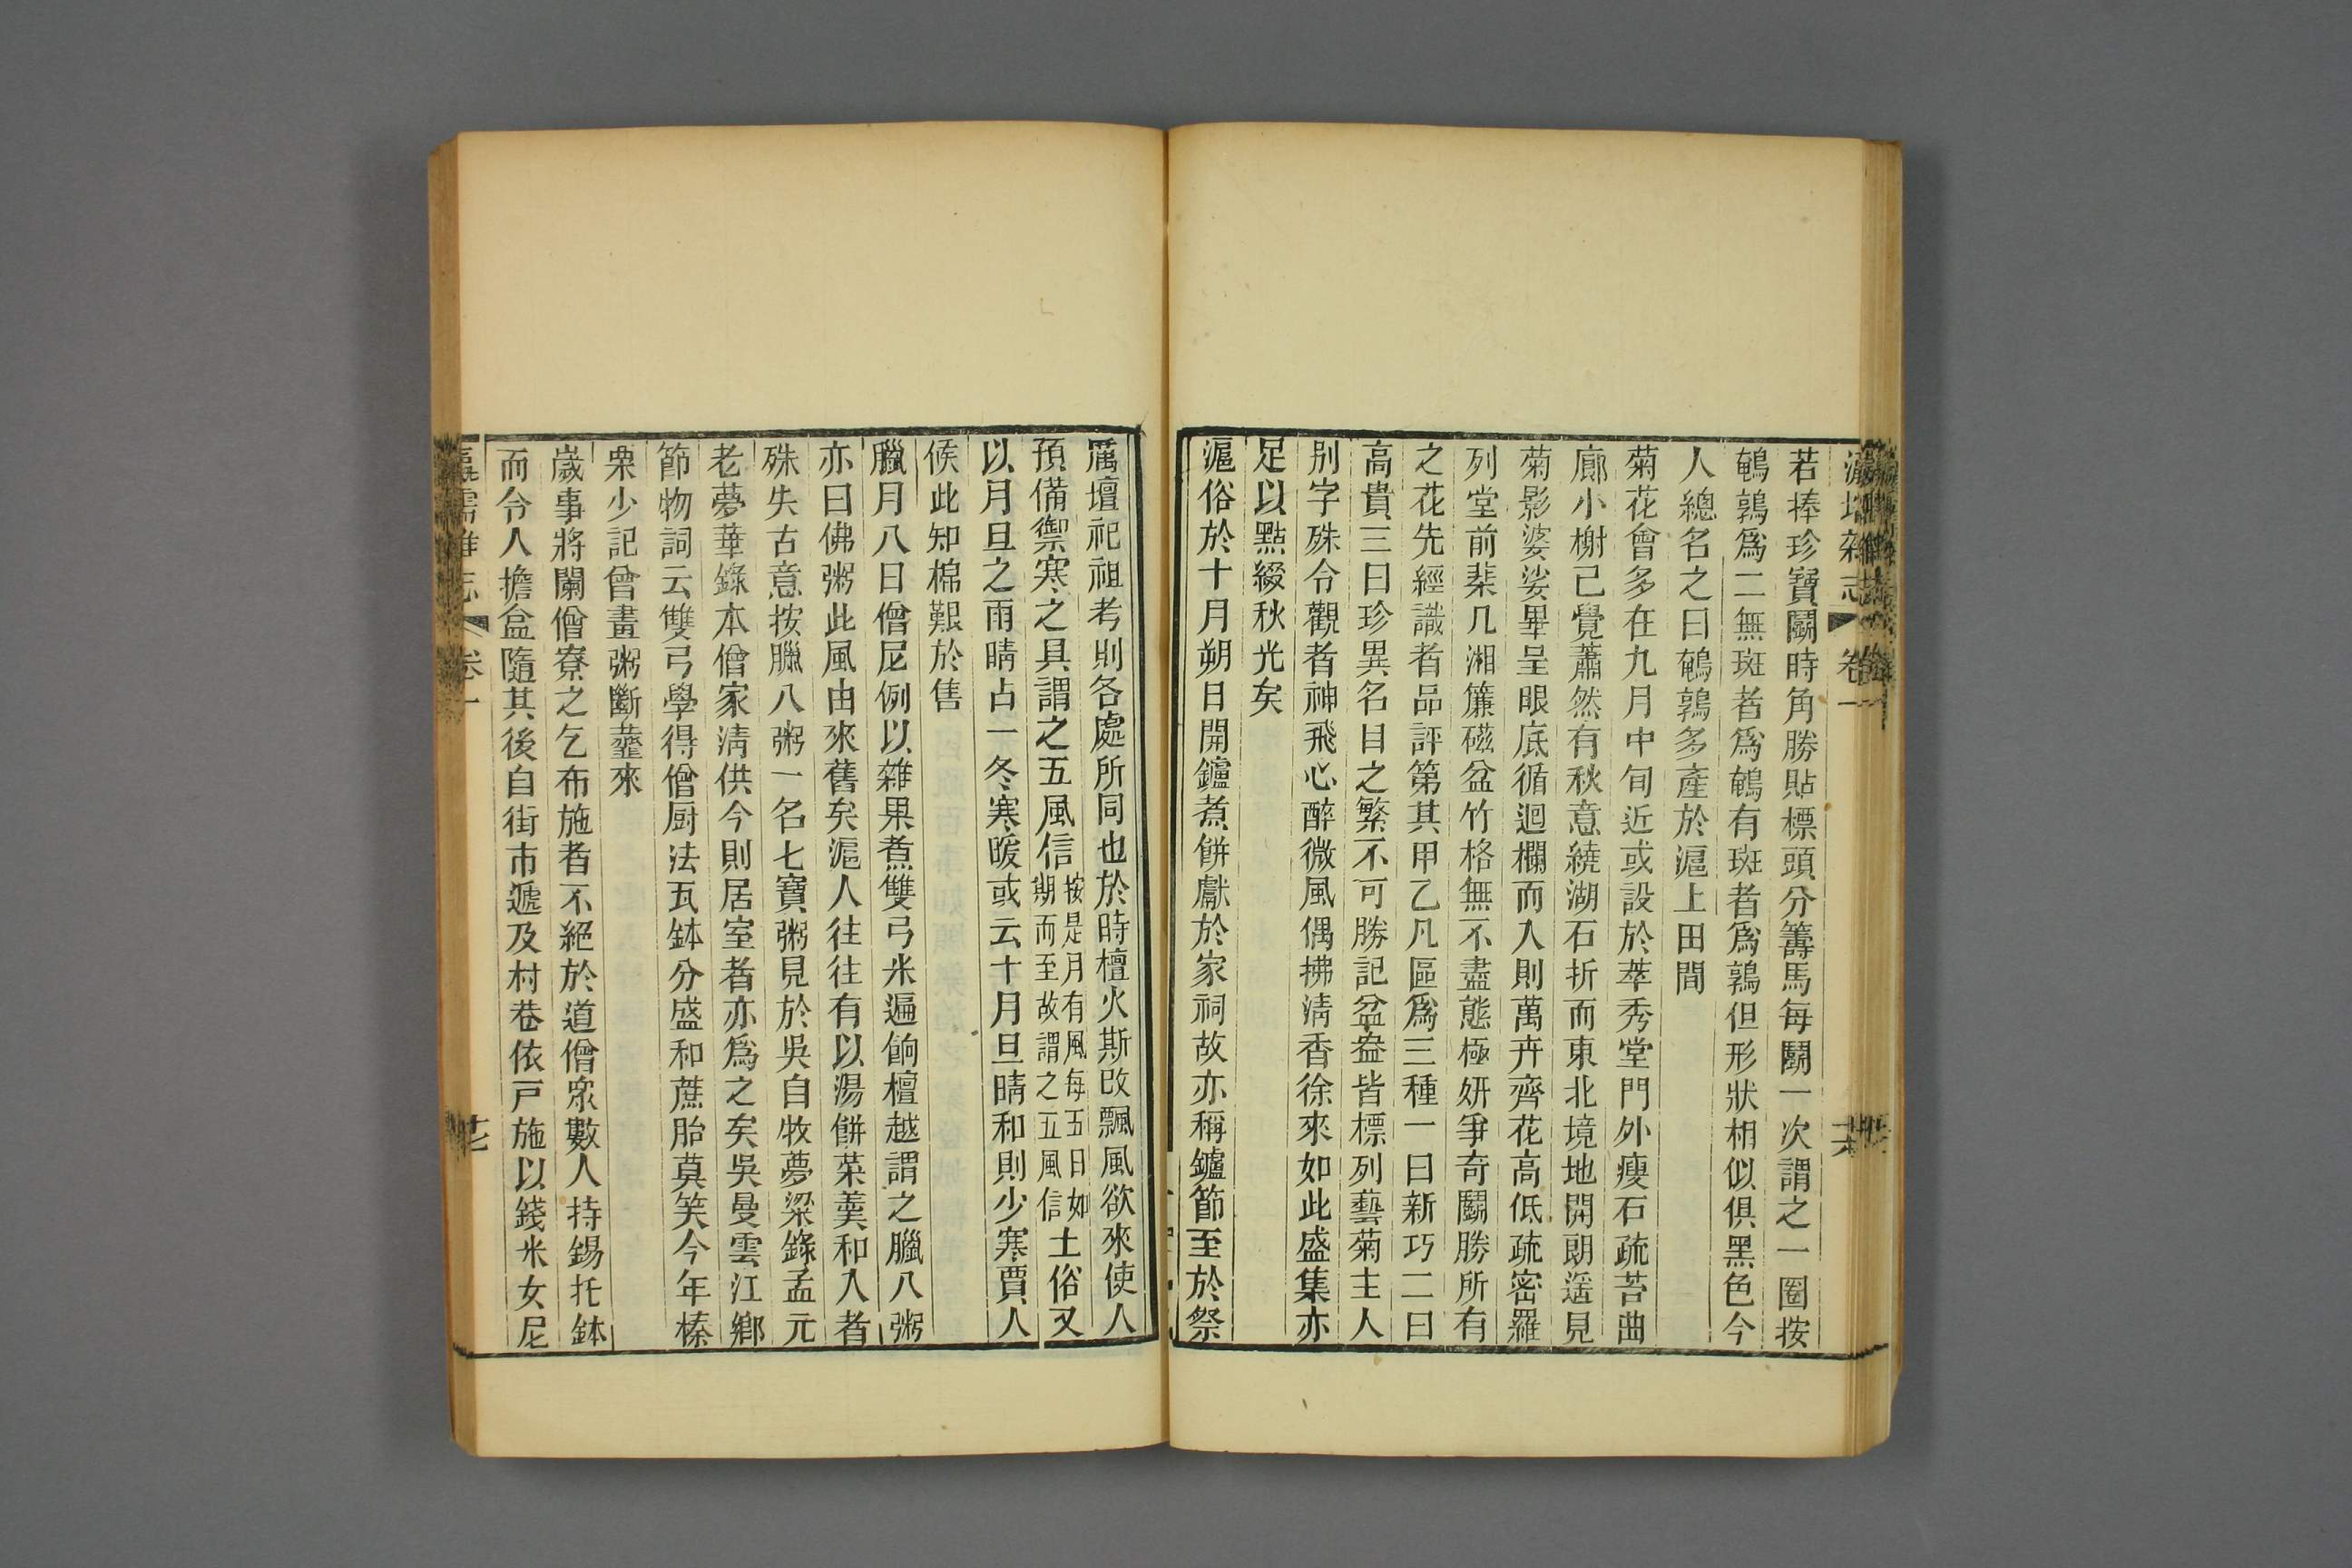 瀛壖雜志 卷一
若捧珍寶鬭時角勝貼標頭分籌馬每鬭一次謂之一圈按
鵪鶉爲二無斑者爲鵪有斑者爲鶉但形狀相似俱黑色今
人總名之曰鵪鶉多產於滬上田間
菊花會多在九月中旬近或設於萃秀堂門外瘦石疏苔曲
廊小榭已覺蕭然有秋意繞湖石折而東北境地開朗遥見
菊影婆娑畢呈眼底循迴欄而入則萬卉齊花高低疏密羅
列堂前棐几湘簾磁盆竹格無不盡態極妍爭奇鬭勝所有
之花先經識者品評第其甲乙凡區爲三種一曰新巧二曰
高貴三曰珍異名目之繁不可勝記盆盎皆標列藝菊主人
别字殊令觀者神飛心醉微風偶拂淸香徐來如此盛集亦
足以點綴秋光矣
滬俗於十月朔日開鑪煮餅獻於家祠故亦稱鑪節至於祭
厲壇祀祖考則各處所同也於時檀火斯改飄風欲來使人
預備禦寒之具謂之五風信按是月有風每五日如期而至故謂之五風信土俗又
以月旦之雨晴占一冬寒暖或云十月旦晴和則少寒賈人
候此知棉艱於售
臘月八日僧尼例以雜果煮雙弓米遍餉檀越謂之臘八粥
亦曰佛粥此風由來舊矣滬人往往有以湯餅菜羹和入者
殊失古意按臘八粥一名七寶粥見於吳自牧夢粱錄孟元
老夢華錄本僧家淸供今則居室者亦爲之矣吳曼雲江鄉
節物詞云雙弓學得僧厨法瓦鉢分盛和蔗胎莫笑今年榛
栗少記曾畫粥斷虀來
歲事將闌僧寮之乞布施者不絕於道僧眾數人持錫托鉢
而令人擔盆隨其後自街市遞及村巷依戸施以錢米女尼
瀛壖雜志 卷一